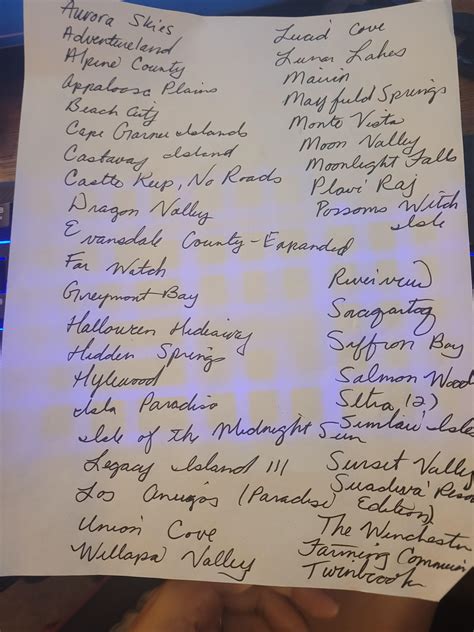 Aurora Skies
Adventureland
Alpine County
Appaloosa Plains
Beach City
Cape Garner Islands
Castaway Island
Castle Keep, No Roads
Dragon Valley
Evansdale County-Expanded
Far Watch
Greymont Bay
Halloween Hideaway
Hidden Springs
Hylewood
Isla Paradiso
Isle of the Midnight Sun
Legacy Island III
Los Amigos (Paradise Edition)
Union Cove
Willapa Valley
Lucid Cove
Lunar Lakes
Mayfield Springs
Monte Vista
Moon Valley
Moonlight Falls
Plavi Raj
Possoms Witch
Isle
Riverview
Saffron Bay
Salmon Wood
Setra (2)
Sunset Valley
The Winchester
Farming
Twinbrook